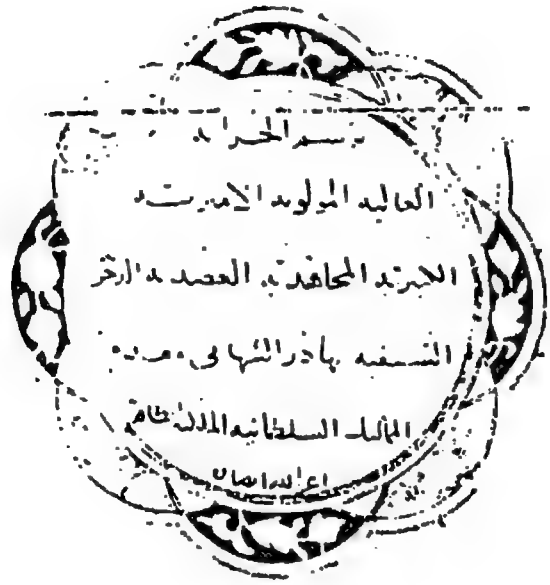 برسم الخزانه
العاليه المولويه الاميريه
الكبيريه المجاهديه العضديه الذخر
السيفيه بهادر الشهابي مقدم
المماليك السلطانيه الملكيه
اعز الله انصاره